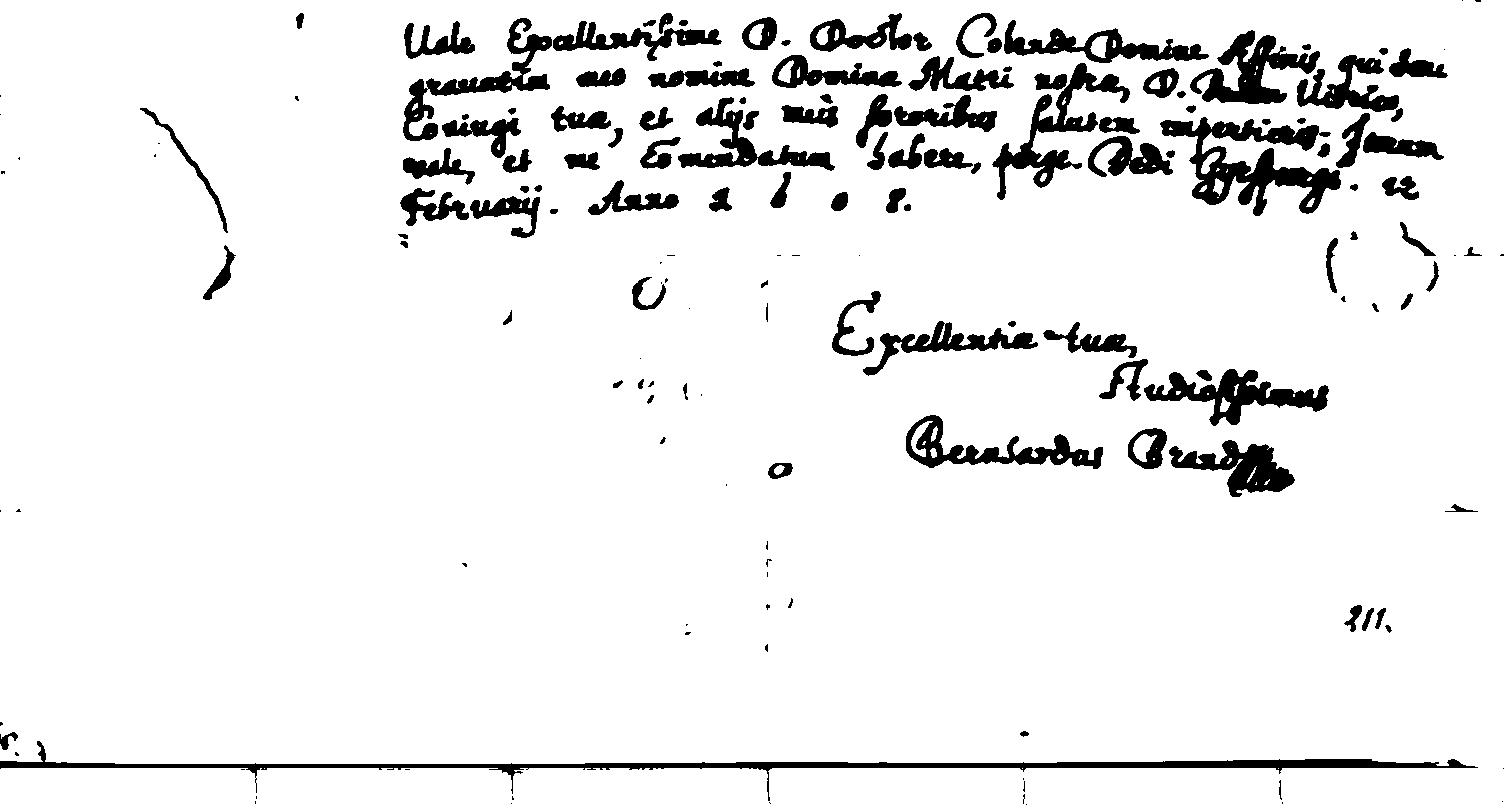 Vale Excellentissime D. Doctor Colende Domine Affinis, qui haut
grauatim meo nomine Dominæ Matri nostræ, D. Vitrico,
Coniugi tuæ, et alijs meis sororibus salutem impertieris; Iterum
vale, et me Comendatum habere, perge. Dedi 12
Februarij. Anno 1608.
Excellentiæ tuæ,
Studiosissimus
Bernhardus Brand
211.